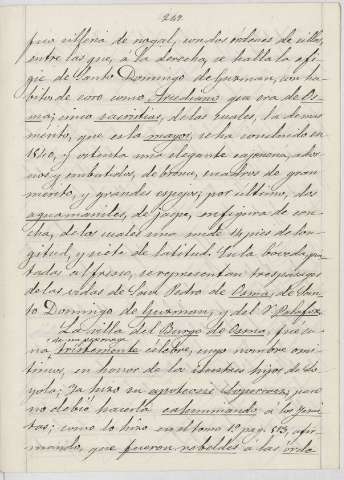 269.
sillería de nogal, con dos órdenes de sillas,
entre las que, a la derecha, se halla la efi-
gie de Santo Domingo de Guzman, con ha-
bitos de coro como Arcediano que era de Os-
ma; cinco sacristias, de las cuales, la de mu-
mento, que es la mayor, se ha concluido en
y ostenta una elegante cajonera, ador-
nos y embutidos, de bronce, cuadros de gran
merito, y grandes espejos; por ultimo, dos
aguamaniles, de jaspe, en figura de con-
cha, de los cuales uno mide 14 pies de lon-
gitud, y siete de latitud. En la boveda pin-
tadas al fresco, se representan tres pasages
de las vidas de San Pedro de Osma, de San-
to Domingo de Guzman, y del Sr. Palafox.
La villa del Burgo de Osma, fue cu-
na de un personage
tristemente célebre, cuyo nombre omi-
timos, en honor de los ilustres hijos de Lo-
yola; Ya hizo su apoteosis Loperraez, pero
no debió hacerla calumniando a los Jesui-
tas; como lo hizo en el tomo 1º pag. 553, afir-
mando, que fueron rebeldes á las órde